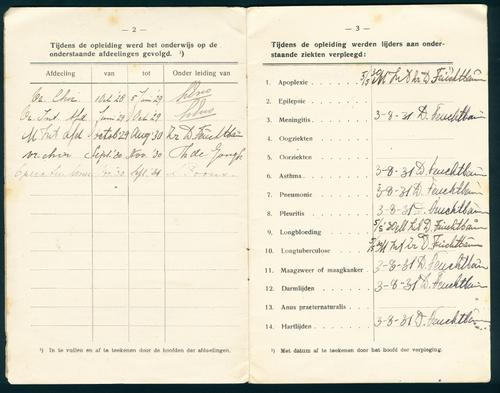 — 2 —
Tijdens de opleiding werd het onderwijs op de
onderstaande afdeelingen gevolgd. ¹)
Afdeeling van tot Onder leiding van
Vr. Chir 1 Oct 28 5 Juni 29
Vr. Int. Afd 1 Juni 29 Oct 29
M Int afd octob 29 Aug '30 Dr D. Feuchtbäum
vr. chir. Sept '30 Nov. '30 Th de Jongh
¹) In te vullen en af te teekenen door de hoofden der afdeelingen.
— 3 —
Tijdens de opleiding werden lijders aan onder-
staande ziekten verpleegd:
1. Apoplexie M Int Dr D. Feuchtbäum
2. Epilepsie
3. Meningitis 3-8-31 D. Feuchtbäum
4. Oogziekten
5. Oorziekten
6. Asthma 3-8-31 D. Feuchtbäum
7. Pneumonie 3-8-31 D. Feuchtbäum
8. Pleuritis 3-8-31 D. Feuchtbäum
9. Longbloeding 5/5 '30 M Int D. Feuchtbäum
10. Longtuberculose M Int Dr D. Feuchtbäum
11. Maagzweer of maagkanker 3-8-31 D. Feuchtbäum
12. Darmlijden 3-8-31 D. Feuchtbäum
13. Anus praeternaturalis
14. Hartlijden 3-8-31 D. Feuchtbäum
¹) Met datum af te teekenen door het hoofd der verpleging.